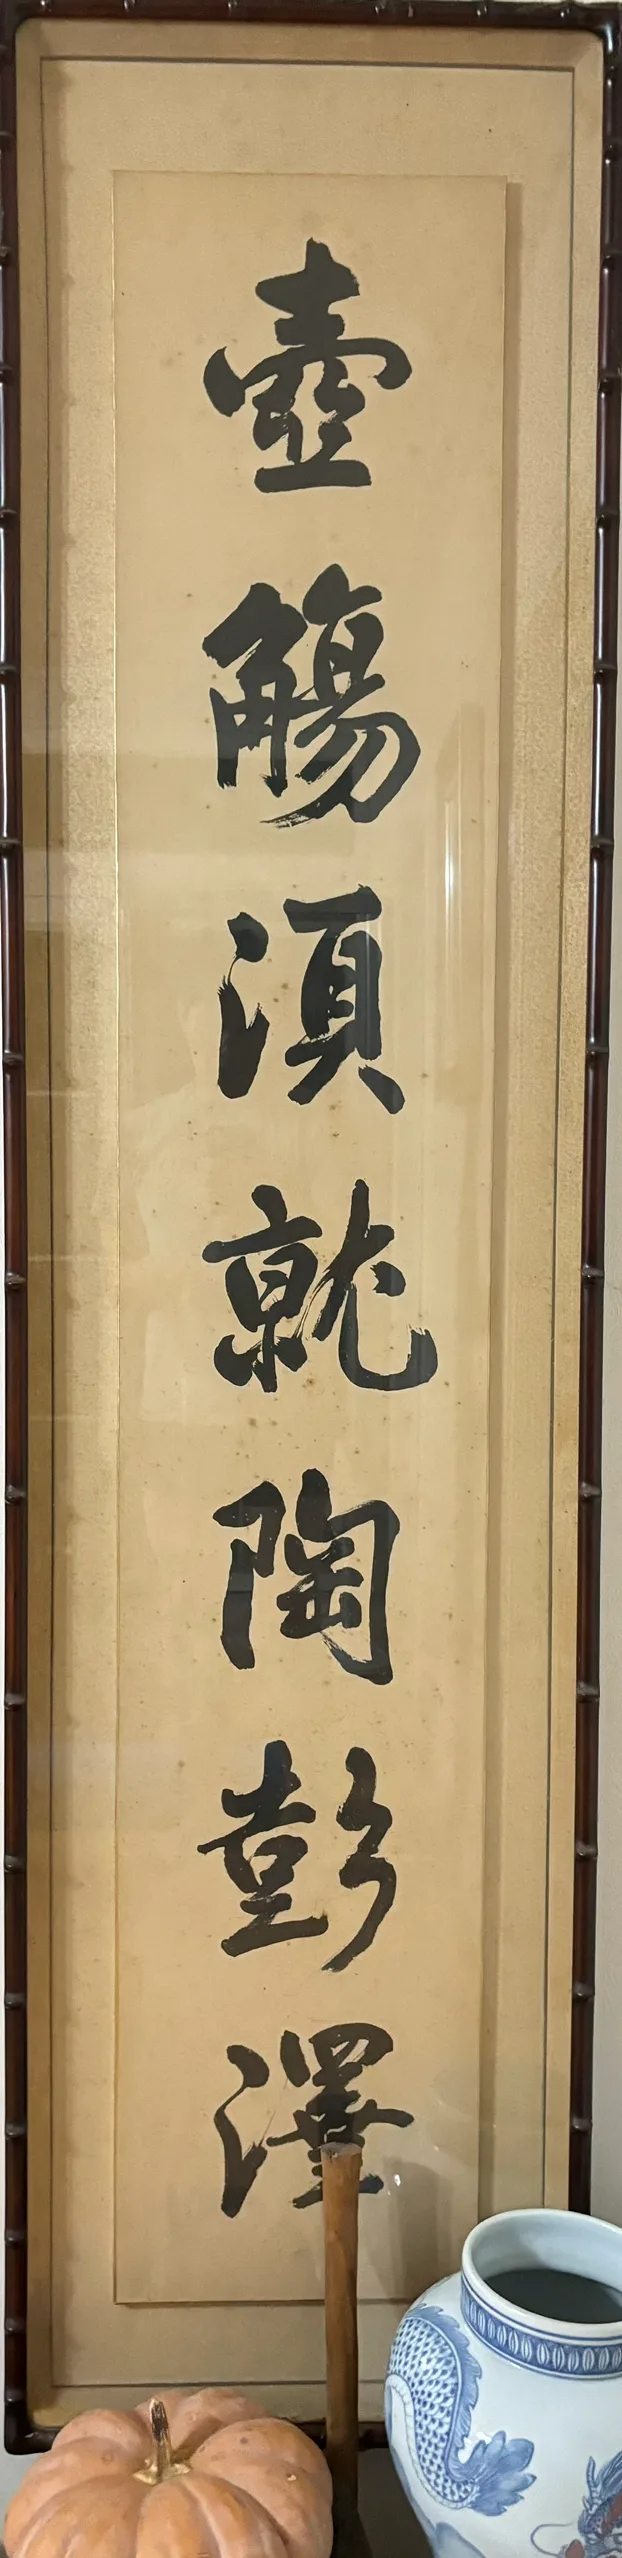 壺觴須就陶彭澤